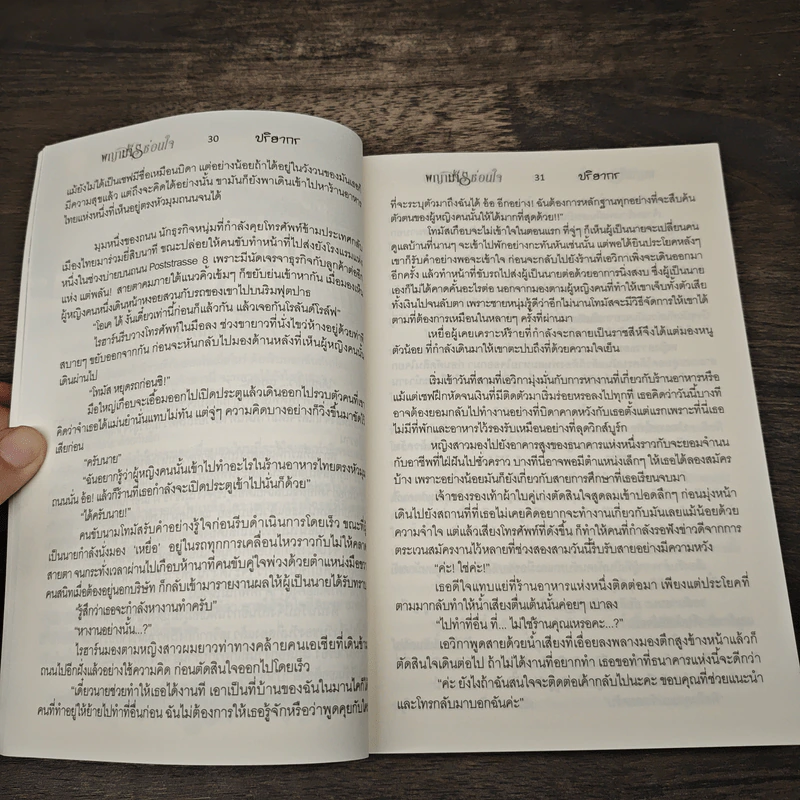 30
ปริฉากร
แม้ยังไม่ได้เป็นเชฟมีชื่อเหมือนบิดา แต่อย่างน้อยถ้าได้อยู่ในวังวนของมันเธอก็
มีความสุขแล้ว แต่ถึงจะคิดได้อย่างนั้น ขามันก็ยังพาเดินเข้าไปหาร้านอาหาร
ไทยแห่งหนึ่งที่เห็นอยู่ตรงหัวมุมถนนจนได้
มุมหนึ่งของถนน นักธุรกิจหนุ่มที่กำลังคุยโทรศัพท์ข้ามประเทศกลับ
เมืองไทยมาร่วมยี่สิบนาที ขณะปล่อยให้คนขับทำหน้าที่ไปส่งยังโรงแรมแห่ง
หนึ่งในช่วงบ่ายบนถนน Poststrasse 8 เพราะมีนัดเจรจาธุรกิจกับลูกค้าต่อ
แห่ง แต่พลัน! สายตาคมภายใต้แนวคิ้วเข้มๆ ก็ขยับย่นเข้าหากัน เมื่อมองเห็น
ผู้หญิงคนหนึ่งเดินหน้าหงอยสวนกับรถของเขาไปบนริมฟุตปาธ
“โอเค ได้ งั้นเดี๋ยวเท่านี้ก่อนก็แล้วกัน แล้วเจอกันโรลันด์โรส์ฟ”
ไรฮาร์นรีบวางโทรศัพท์ในมือลง ช่วงขายาวที่นั่งไขว่ห้างอยู่ด้วยท่า
สบายๆ ขยับออกจากกัน ก่อนจะหันกลับไปมองด้านหลังที่เห็นผู้หญิงคนนั้น
เดินผ่านไป
“โทมัส หยุดรถก่อนซิ!”
มือใหญ่เกือบจะเอื้อมออกไปเปิดประตูแล้วเดินออกไปรวบตัวคนที่เขา
คิดว่าจำเธอได้แม่นยำนั่นแทบไม่ทัน แต่จู่ๆ ความคิดบางอย่างก็วิ่งขึ้นมาขัดไว้
เสียก่อน
“ครับนาย”
“ฉันอยากรู้ว่าผู้หญิงคนนั้นเข้าไปทำอะไรในร้านอาหารไทยตรงหัวมุม
ถนนนั่น อ้อ! แล้วก็ร้านที่เธอกำลังจะเปิดประตูเข้าไปนั่นก็ด้วย”
“ได้ครับนาย!”
คนขับนามโทมัสรับคำอย่างรู้ใจก่อนรีบดำเนินการโดยเร็ว ขณะที่ผู้
เป็นนายกำลังนั่งมอง ‘เหยื่อ’ อยู่ในรถทุกการเคลื่อนไหวราวกับไม่ให้คลาด
สายตา จนกระทั่งเวลาผ่านไปเกือบห้านาทีคนขับคู่ใจพ่วงด้วยตำแหน่งมือขวา
คนสนิทเมื่อต้องอยู่นอกบริษัท ก็กลับเข้ามารายงานผลให้ผู้เป็นนายได้รับทราบ
“รู้สึกว่าเธอจะกำลังหางานทำครับ”
“หางานอย่างนั้น...?”
ไรฮาร์นมองตามหญิงสาวผมยาวท่าทางคล้ายคนเอเชียที่เดินข้าม
ถนนไปอีกฝั่งแล้วอย่างใช้ความคิด ก่อนตัดสินใจออกไปโดยเร็ว
“เดี๋ยวนายช่วยทำให้เธอได้งานที เอาเป็นที่บ้านของฉันในมานไดก็ได้
คนที่ทำอยู่ให้ย้ายไปทำที่อื่นก่อน ฉันไม่ต้องการให้เธอรู้จักหรือว่าพูดคุยกับใคร
31
ปริฉากร
ที่จะระบุตัวมาถึงฉันได้ อ้อ อีกอย่าง! ฉันต้องการหลักฐานทุกอย่างที่จะสืบค้น
ตัวตนของผู้หญิงคนนั้นให้ได้มากที่สุดด้วย!!”
โทมัสเกือบจะไม่เข้าใจในตอนแรก ที่จู่ๆ ก็เห็นผู้เป็นนายจะเปลี่ยนคน
ดูแลบ้านที่นานๆ จะเข้าไปพักอย่างกะทันหันเช่นนั้น แต่พอได้ยินประโยคหลังๆ
เขาก็รับคำอย่างพอจะเข้าใจ ก่อนจะกลับไปยังร้านที่เอวิกาเพิ่งจะเดินออกมา
อีกครั้ง แล้วทำหน้าที่ขับรถไปส่งผู้เป็นนายต่อด้วยอาการนิ่งสงบ ซึ่งผู้เป็นนาย
เองก็ไม่ได้คาดคั้นอะไรต่อ นอกจากมองตามผู้หญิงคนที่ทำให้เขาเจ็บทั้งตัวเสีย
ทั้งเงินไปจนลับตา เพราะชายหนุ่มรู้ดีว่าอีกไม่นานโทมัสจะมีวิธีจัดการให้เขาได้
ตามที่ต้องการเหมือนในหลายๆ ครั้งที่ผ่านมา
เหยื่อผู้เคยเคราะห์ร้ายที่กำลังจะกลายเป็นราชสีห์จึงได้แต่มองหนู
ตัวน้อย ที่กำลังเดินมาให้เขาตะปบถึงที่ด้วยความใจเย็น
เริ่มเข้าวันที่สามที่เอวิกามุ่งมั่นกับการหางานที่เกี่ยวกับร้านอาหารหรือ
แม้แต่เชฟฝึกหัดจนเงินที่มีติดตัวมาเริ่มร่อยหรอลงไปทุกที เธอคิดว่าวันนี้บางที
อาจต้องยอมกลับไปทำงานอย่างที่บิดาคาดหวังกับเธอตั้งแต่แรกเพราะที่นี่เธอ
ไม่มีที่พักและอาหารไว้รองรับเหมือนอย่างที่ลุดวิกส์บูร์ก
หญิงสาวมองไปยังอาคารสูงของธนาคารแห่งหนึ่งราวกับจะยอมจำนน
กับอาชีพที่ใฝ่ฝันไปชั่วคราว บางทีนี่อาจพอมีตำแหน่งเล็กๆ ให้เธอได้ลองสมัคร
บ้าง เพราะอย่างน้อยมันก็ยังเกี่ยวกับสายการศึกษาที่เธอเรียนจบมา
เจ้าของรองเท้าผ้าใบคู่เก่งตัดสินใจสูดลมเข้าปอดลึกๆ ก่อนมุ่งหน้า
เดินไปยังสถานที่ที่เธอไม่เคยคิดอยากจะทำงานเกี่ยวกับมันเลยแม้น้อยด้วย
ความจำใจ แต่แล้วเสียงโทรศัพท์ที่ดังขึ้น ก็ทำให้คนที่กำลังรอฟังข่าวดีจากการ
ตระเวนสมัครงานไว้หลายที่ช่วงสองสามวันนี้รีบรับสายอย่างมีความหวัง
“ค่ะ! ใช่ค่ะ!”
เธอดีใจแทบแย่ที่ร้านอาหารแห่งหนึ่งติดต่อมา เพียงแต่ประโยคที่
ตามมากลับทำให้น้ำเสียงตื่นเต้นนั้นค่อยๆ เบาลง
“ไปทำที่อื่น ที่... ไม่ใช่ร้านคุณเหรอคะ...?”
เอวิกาพูดสายด้วยน้ำเสียงที่เอื่อยลงพลางมองตึกสูงข้างหน้าแล้วก็
ตัดสินใจเดินต่อไป ถ้าไม่ได้งานที่อยากทำ เธอขอทำที่ธนาคารแห่งนี้จะดีกว่า
“ค่ะ ยังไงถ้าฉันสนใจจะติดต่อเค้ากลับไปนะคะ ขอบคุณที่ช่วยแนะนำ
และโทรกลับมาบอกฉันค่ะ”